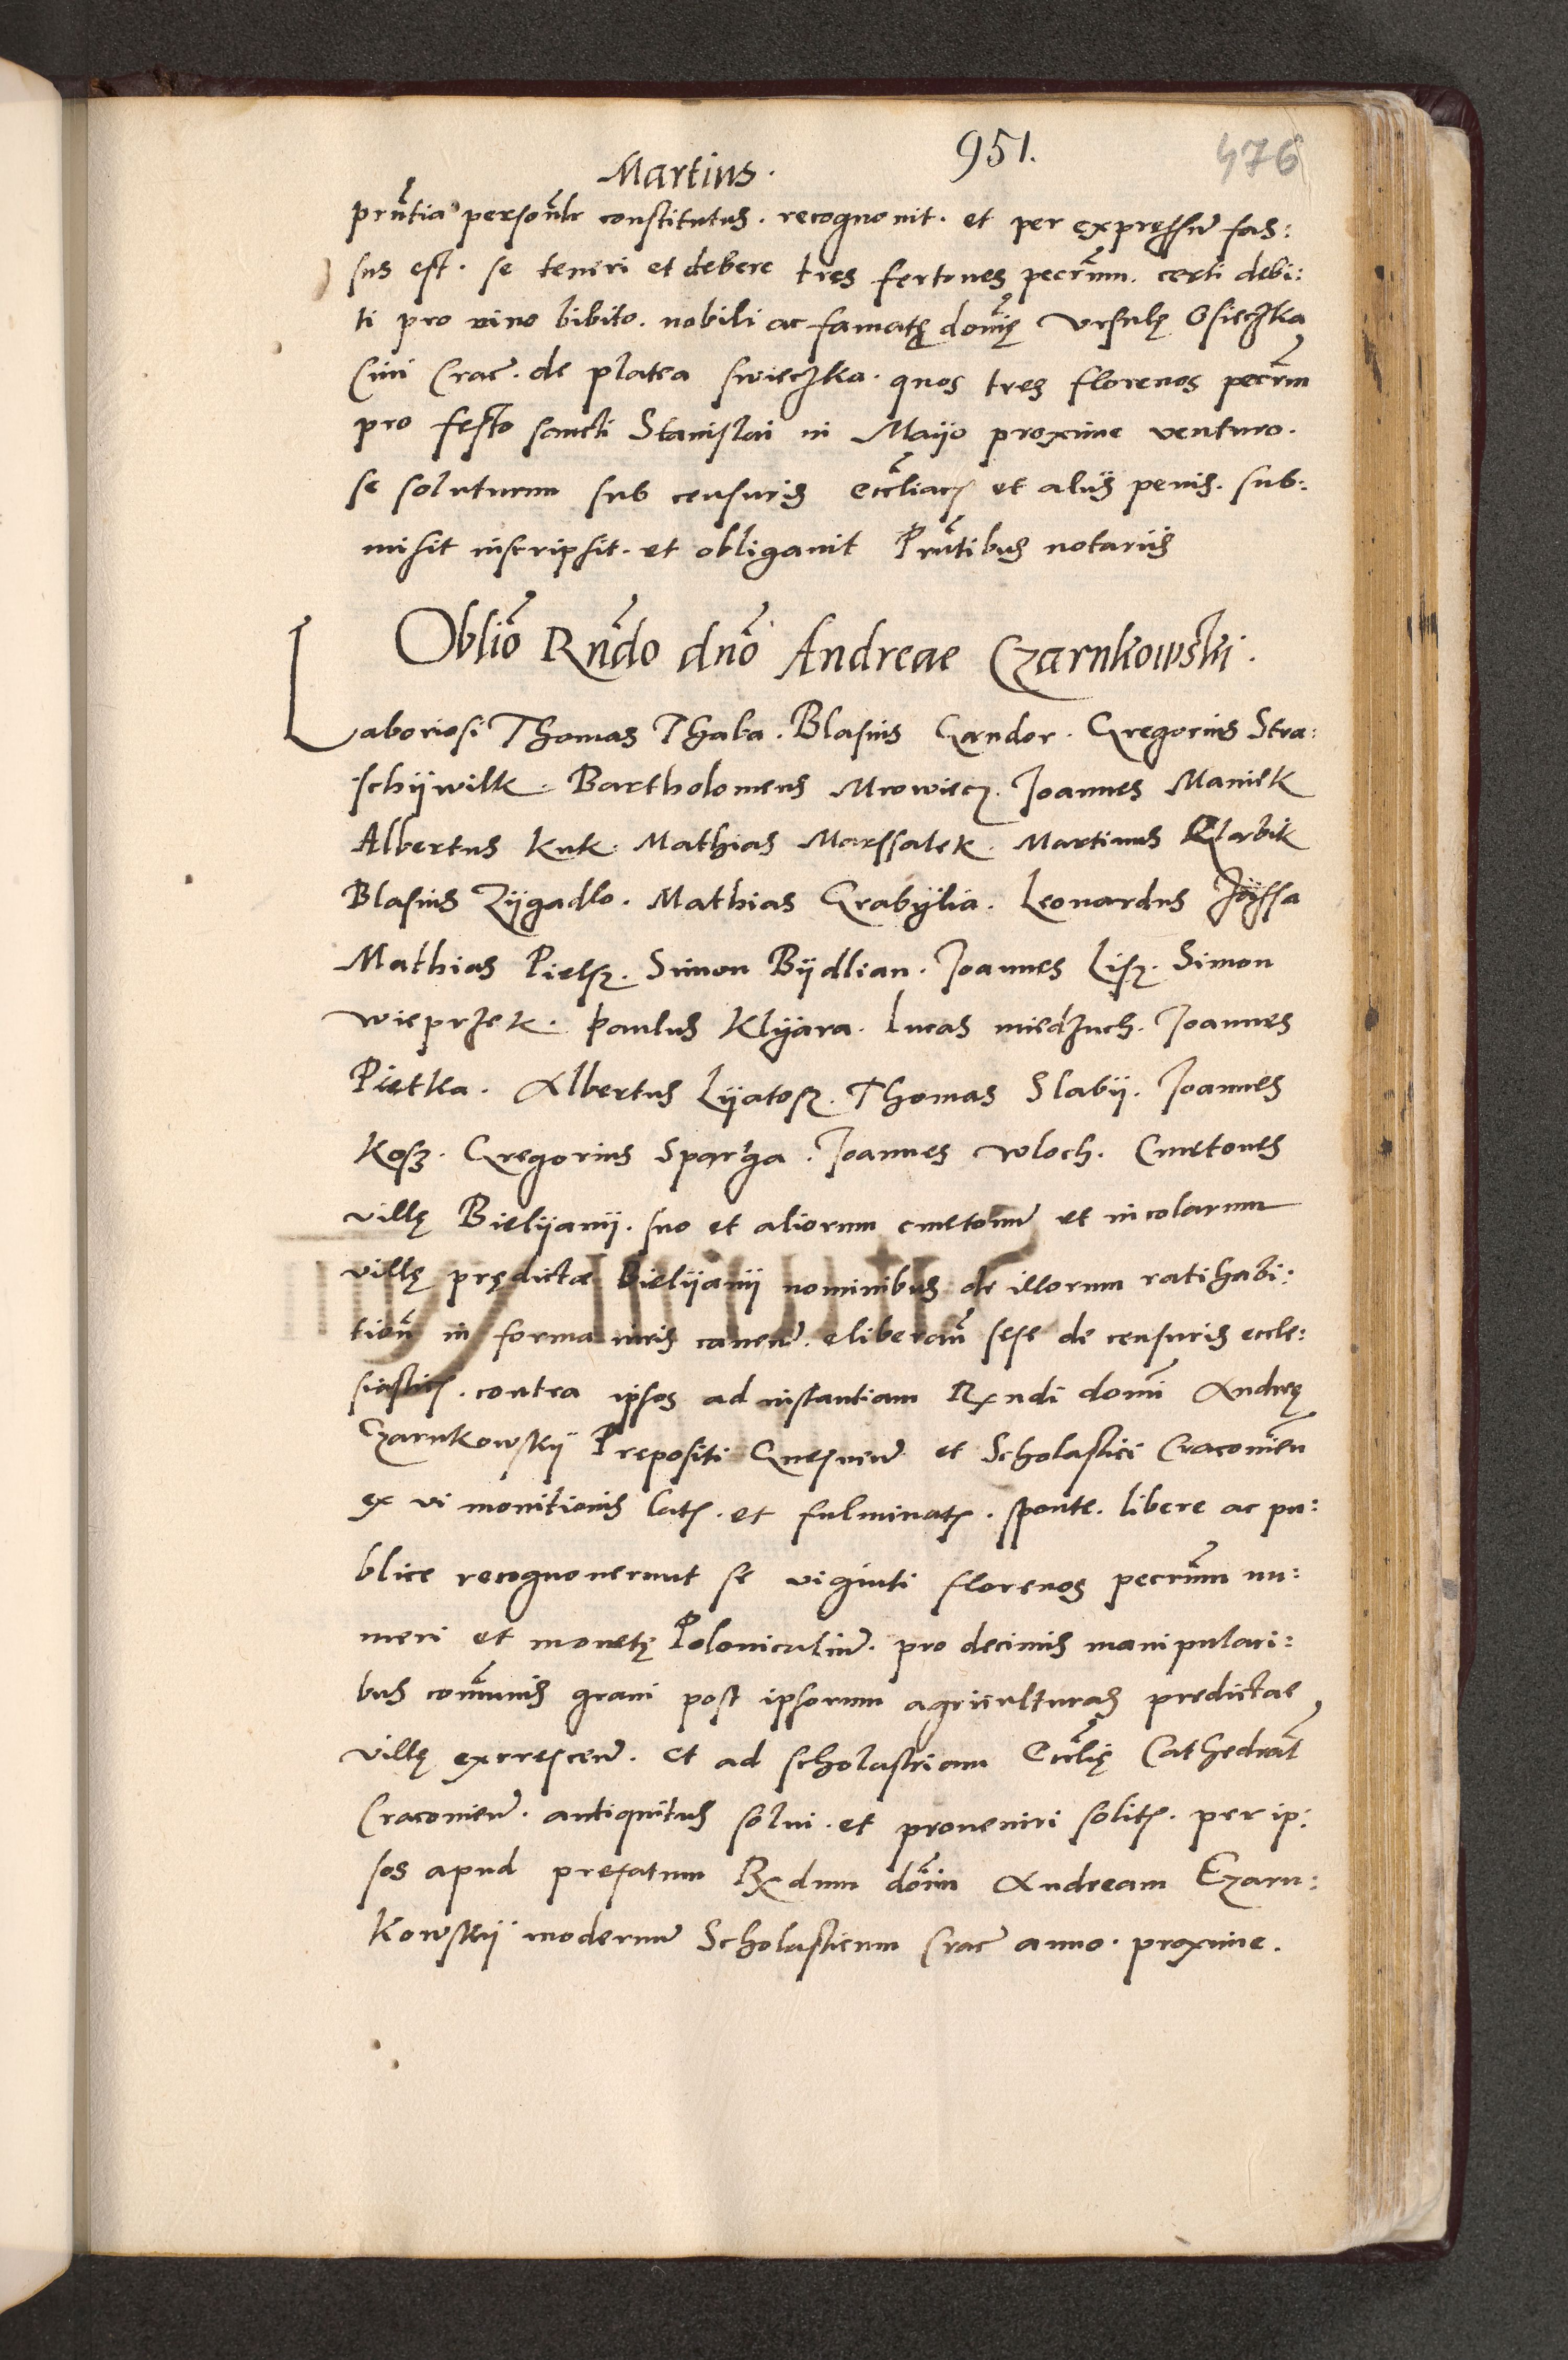 951.
476
Martius.
prñtia personlr constitutus. recognovit. et per expressũ fas:
sus est. se teneri et debere tres fertones pecũm. certi debi:
ti pro vino bibito. nobili ac famatę domię Ursulę Osieczka
Civi Crac̃. de platea swieczka. quos tres florenos pecm̃
pro festo sancti Stanislai in Mayo proxime venturo.
se soluturum sub censuris eccl̃iacȝ et aliis penis. sub:
misit inscripsit. et obligavit Prñtibus notariis
Oblĩo Rñdo dño Andreae Czarnkowski.
Laboriosi Thomas Thaba. Blasius Gandor. Gregorius Stra:
schÿwilk. Bartholomeus Mrowiecz. Joannes Maniek
Albertus Kuk. Mathias Marssalek. Martinus Klabik
Blasius Zÿgadlo. Mathias Grabÿlia. Leonardus
Mathias Pielsz. Simon Bÿdlian. Joannes Lisz. Simon
Wieprzek. Paulus Klÿara. Lucas miedzuch. Joannes
Pietka. Albertus Lÿatosz. Thomas Slabÿ. Joannes
Kosz. Gregorius Sparga. Joannes Wloch. Cmetones
villę Bielÿanÿ. suo et aliorum cmetonũ et incolarum
villę prędictae Bielÿanÿ nominibus de illorum ratihabi:
tion̄ in forma iuris caven̄. eliberan̄ sese de censuris eccle:
siasticȝ. contra ipsos ad instantiam Rndi domĩ Andreę
Czarnkowskÿ Prepositi Gnesnen̄ et Scholastici Cracovien̄
ex vi monitionis latȝ. et fulminatȝ. sponte. libere ac pu:
blice recognoverunt se viginti florenos pecũm nu:
meri et monetę Polonicalium. pro decimis manipulari:
bus com̃unis grani post ipsorum agriculturas predictae
villę excrescen̄. et ad scholastriam Eccl̃ię Cathedral̃
Cracovien̄. antiquitus solvi. et proveniri solitȝ. per ip:
sos apud prefatum Rndum dom̃ Andream Czarn:
Kowskÿ modernũ Scholasticum Crac̃ anno. proxime.